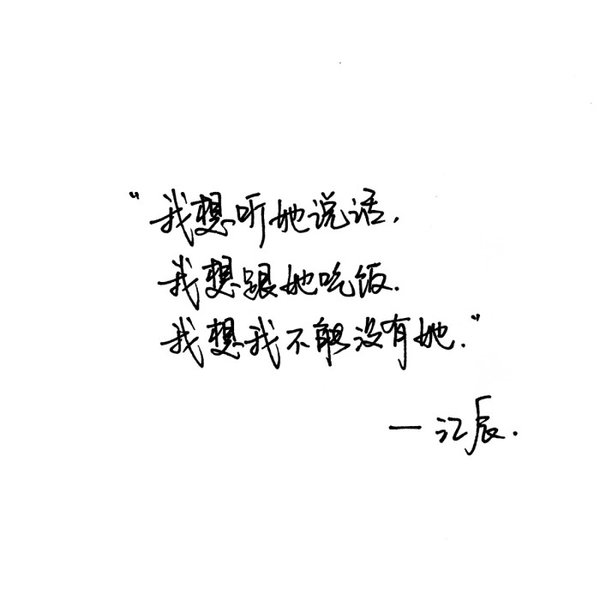 "我想听她说话.
我想跟她吃饭.
我想我不能没有她."
— 江辰.